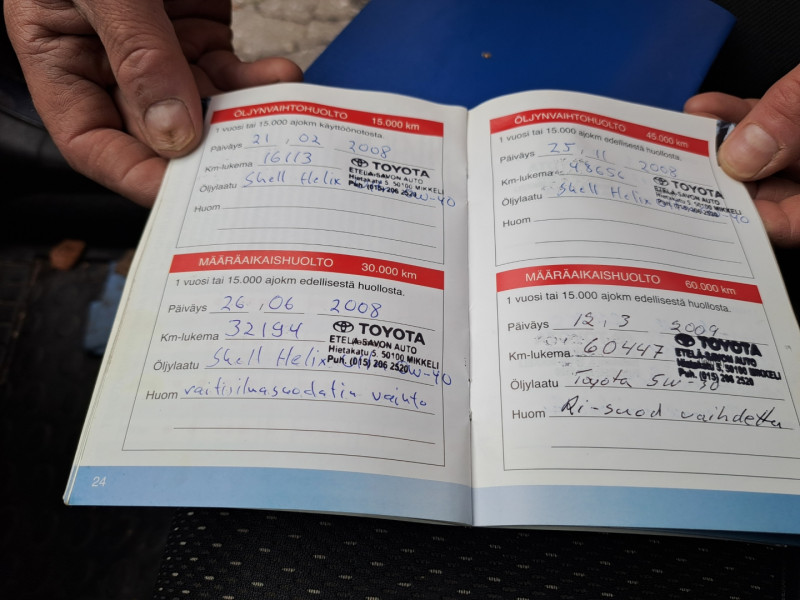 ÖLJYNVAIHTOHUOLTO 15.000 km
1 vuosi tai 15.000 ajokm käyttöönotosta.
Päiväys 21 . 02 2008
Km-lukema 16113
Öljylaatu Shell Helix W-40
TOYOTA
ETELÄ-SAVON AUTO
Hietakatu 5, 50100 MIKKELI
Puh. (015) 206 2520
Huom
MÄÄRÄAIKAISHUOLTO 30.000 km
1 vuosi tai 15.000 ajokm edellisestä huollosta.
Päiväys 26 . 06 2008
Km-lukema 32194
Öljylaatu Shell Helix W-40
TOYOTA
ETELÄ-SAVON AUTO
Hietakatu 5, 50100 MIKKELI
Puh. (015) 206 2520
Huom raitisilmasuodatin vaihto
24
ÖLJYNVAIHTOHUOLTO 45.000 km
1 vuosi tai 15.000 ajokm edellisestä huollosta.
Päiväys 25 . 11 2008
Km-lukema 48656
Öljylaatu Shell Helix W-40
TOYOTA
ETELÄ-SAVON AUTO
Hietakatu 5, 50100 MIKKELI
Puh. (015) 206 2520
Huom
MÄÄRÄAIKAISHUOLTO 60.000 km
1 vuosi tai 15.000 ajokm edellisestä huollosta.
Päiväys 12 . 3 2009
Km-lukema 60447
Öljylaatu Toyota 5W-30
TOYOTA
ETELÄ-SAVON AUTO
Hietakatu 5, 50100 MIKKELI
Puh. (015) 206 2520
Huom Ri-suod vaihdettu